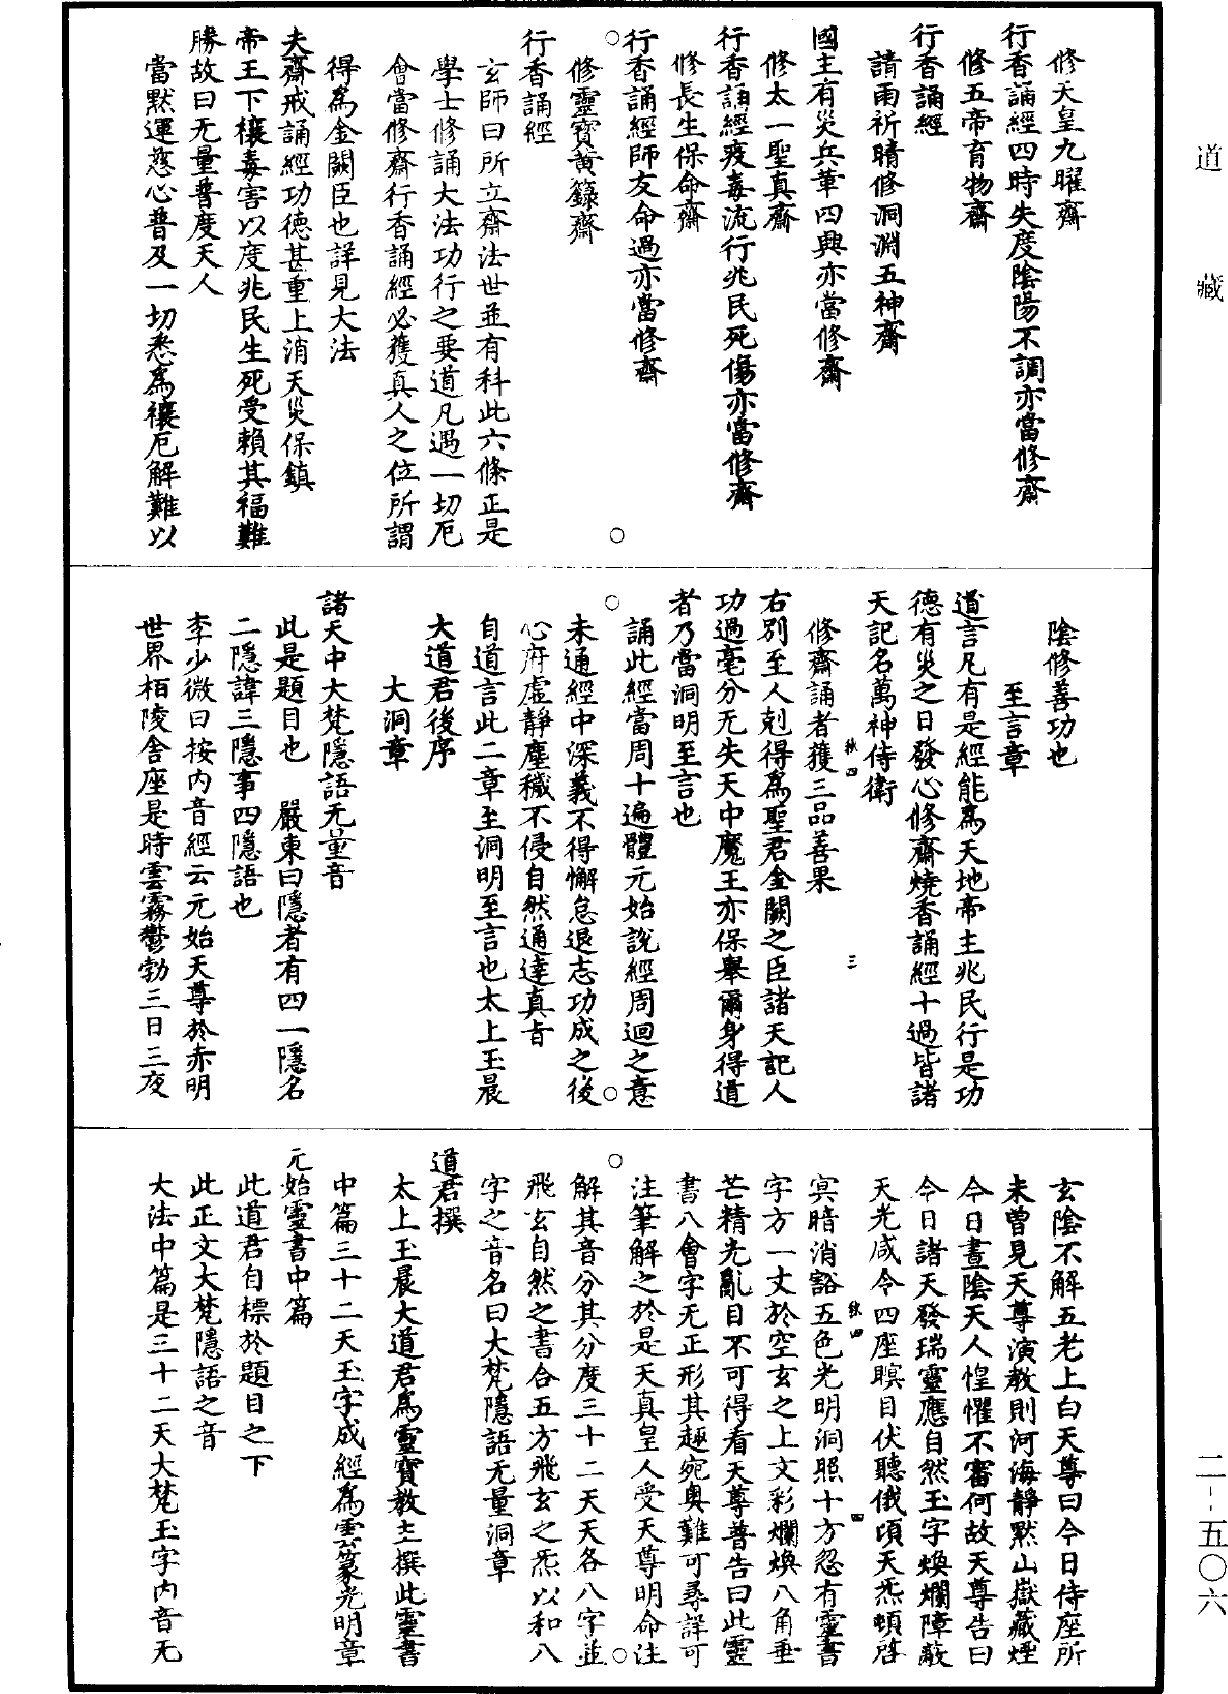 道藏
修天皇九曜齋
行香誦經四時失度陰陽不調亦當修齋
修五帝育物齋
行香誦經
請雨祈晴修洞淵五神齋
國主有災兵革四興亦當修齋
修太一聖真齋
行香誦經疫毒流行兆民死傷亦當修齋
修長生保命齋
行香誦經師友命過亦當修齋
修靈寶黃籙齋
行香誦經
玄師曰所立齋法世並有科此六條正是
學士修誦大法功行之要道凡遇一切厄
會當修齋行香誦經必獲真人之位所謂
得為金闕臣也詳見大法
夫齋戒誦經功德甚重上消天災保鎮
帝王下禳毒害以度兆民生死受賴其福難
勝故曰无量普度天人
當默運慈心普及一切悉為禳厄解難以
陰修善功也
至言章
道言凡有是經能為天地帝主兆民行是功
德有災之日發心修齋燒香誦經十過皆諸
天記名萬神侍衛
秋四 三
修齋誦者獲三品善果
右別至人剋得為聖君金闕之臣諸天記人
功過毫分无失天中魔王亦保舉爾身得道
者乃當洞明至言也
誦此經當周十遍體元始說經周迴之意
未通經中深義不得懈怠退志功成之後
心府虛靜塵穢不侵自然通達真旨
自道言此二章至洞明至言也太上玉晨
大道君後序
大洞章
諸天中大梵隱語无量音
此是題目也 嚴東曰隱者有四一隱名
二隱諱三隱事四隱語也
李少微曰按內音經云元始天尊於赤明
世界栢陵舍座是時雲霧鬱勃三日三夜
玄陰不解五老上白天尊曰今日侍座所
未曾見天尊演教則河海靜默山嶽藏煙
今日晝陰天人惶懼不審何故天尊告曰
今日諸天發瑞靈應自然玉字煥爛障蔽
天光咸令四座瞑目伏聽俄頃天炁頓啓
秋四 四
冥暗消豁五色光明洞照十方忽有靈書
字方一丈於空玄之上文彩爛煥八角垂
芒精光亂目不可得看天尊普告曰此靈
書八會字无正形其趣宛奧難可尋詳可
注筆解之於是天真皇人受天尊明命注
解其音分其分度三十二天天各八字並
飛玄自然之書合五方飛玄之炁以和八
字之音名曰大梵隱語无量洞章
道君撰
太上玉晨大道君為靈寶教主撰此靈書
中篇三十二天玉字成經為雲篆光明章
元始靈書中篇
此道君自標於題目之下
此正文大梵隱語之音
大法中篇是三十二天大梵玉字內音无
二--五〇六